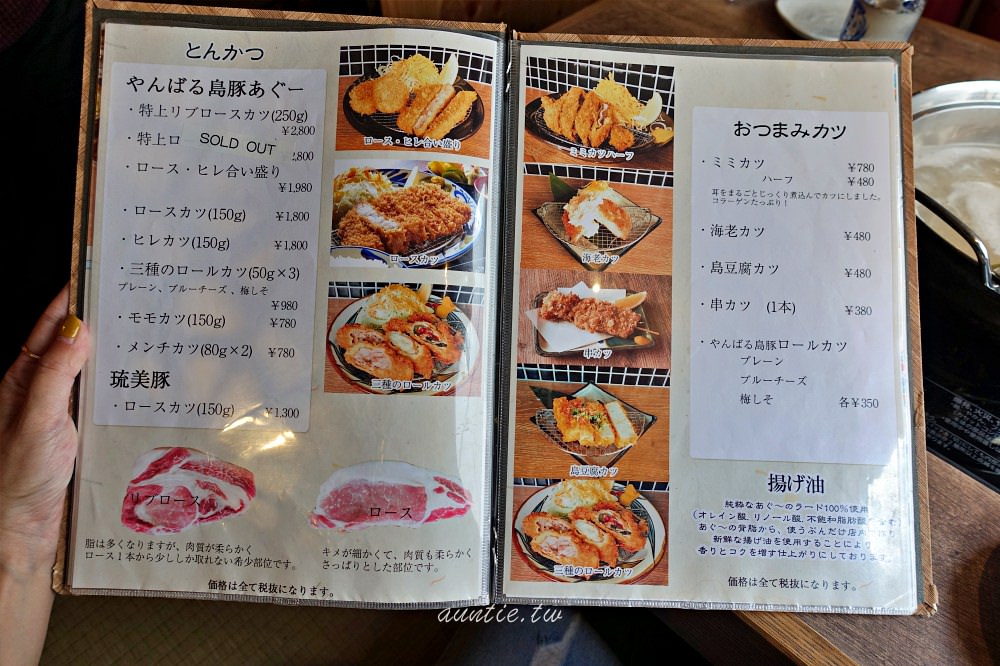 とんかつ
やんばる島豚あぐー
・特上リブロースカツ(250g)
¥2,800
・特上ロ SOLD OUT
,800
・ロース・ヒレ合い盛り
¥1,980
・ロースカツ(150g) ¥1,800
・ヒレカツ(150g) ¥1,800
・三種のロールカツ(50g×3)
プレーン、ブルーチーズ 、梅しそ
¥980
・モモカツ(150g) ¥780
・メンチカツ(80g×2) ¥780
琉美豚
・ロースカツ(150g) ¥1,300
ロース・ヒレ合い盛り
ロースカツ
三種のロールカツ
リブロース
脂は多くなりますが、肉質が柔らかく
ロース1本から少ししか取れない希少部位です。
ロース
キメが細かくて、肉質も柔らかく
さっぱりとした部位です。
価格は全て税抜になります。
ミミカツハーフ
海老カツ
串カツ
島豆腐カツ
三種のロールカツ
おつまみカツ
・ミミカツ ¥780
ハーフ ¥480
耳をまるごとじっくり煮込んでカツにしました。
コラーゲンたっぷり！
・海老カツ ¥480
・島豆腐カツ ¥480
・串カツ (1本) ¥380
・やんばる島豚ロールカツ
プレーン
ブルーチーズ
梅しそ 各¥350
揚げ油
純粋なあぐ～のラード100%使用
(オレイン酸、リノール酸、不飽和脂肪酸
あぐ～の背脂から、使うぶんだけ店内
新鮮な揚げ油を使用することにより
香りとコクを増す仕上がりにしております。
価格は全て税抜になります。
auntie.tw